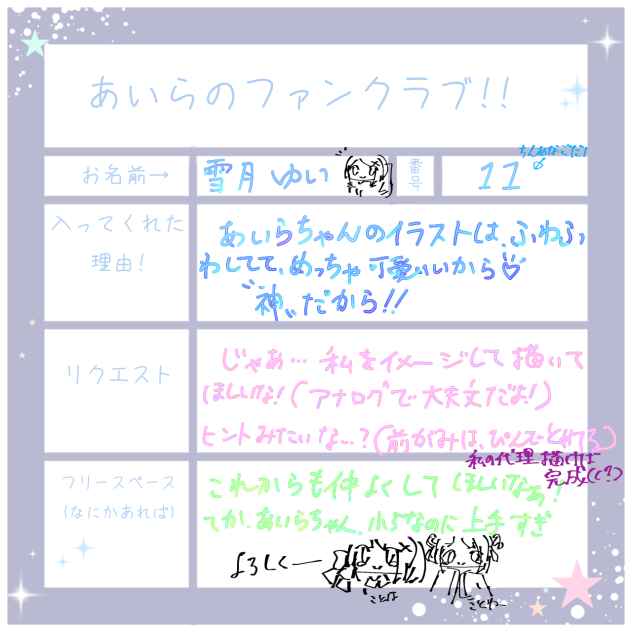 あいらのファンクラブ!!
お名前→
雪月 ゆい
番号
11
ちんあなごだ!
入ってくれた
理由!
あいらちゃんのイラストは、ふわふ
わしてて、めっちゃ可愛いいから♡
〝神〟だから!!
リクエスト
じゃあ… 私をイメージして描いて
ほしいな!(アナログで大丈夫だよ!)
ヒントみたいな…?(前がみは、ぴんでとめてる)
私の代理描けば
完成(?)
フリースペース
(なにかあれば)
これからも仲よくしてほしいなぁ!
てか、あいらちゃん、小5なのに上手すぎ
よろしくー
ことな